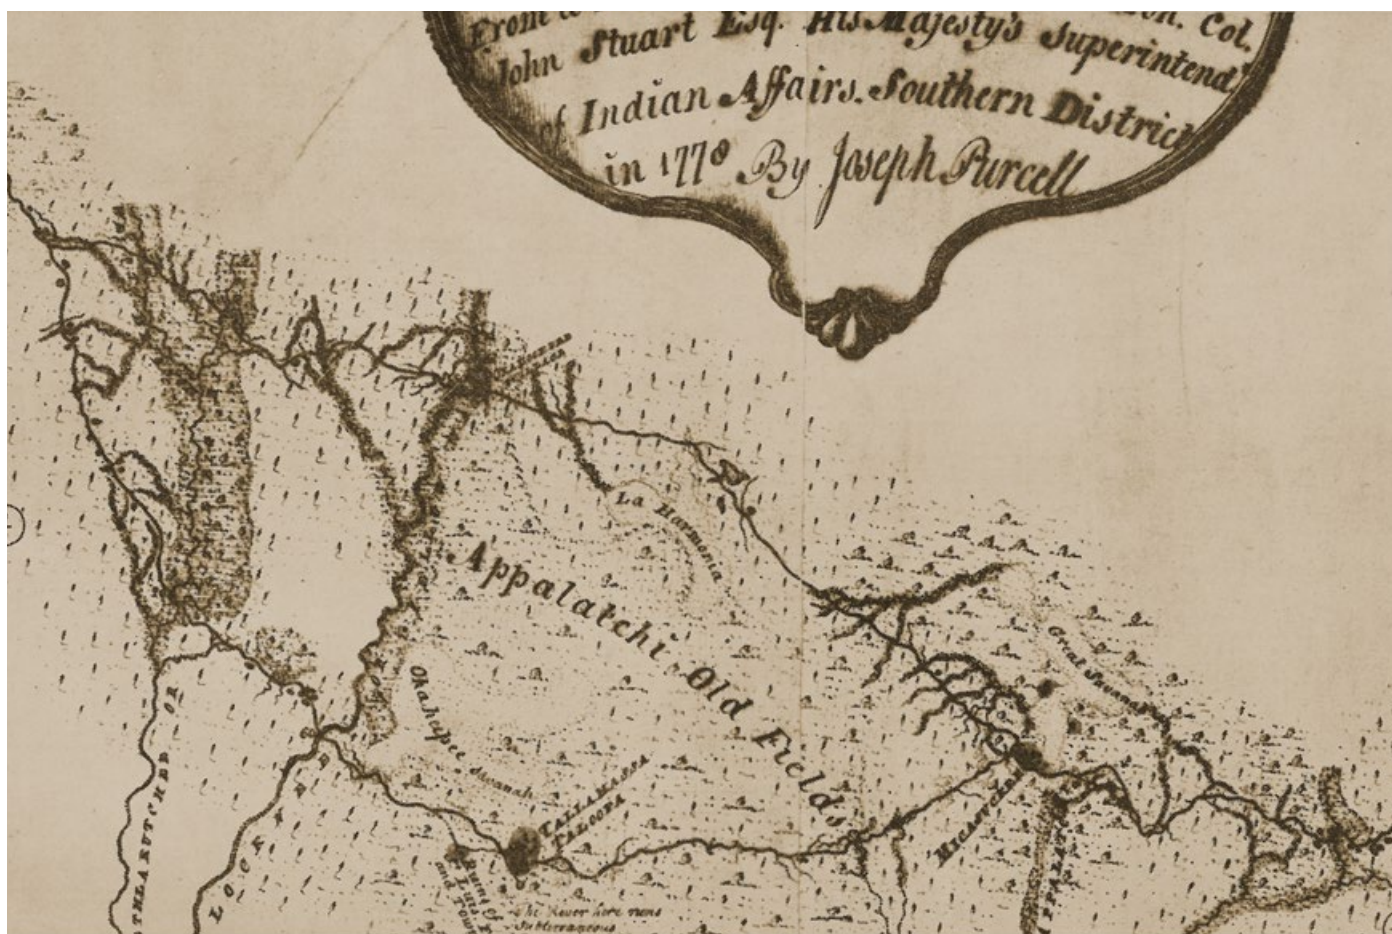 John Stuart Esq. His Majesty's Superintend.t
of Indian Affairs. Southern District
in 1778 By Joseph Purcell
La Harmonia
Appalatchi Old Fields
Great Savannah
Okahepee Savanah
TALLAHASSA
TALOOPA
MICASUCKEE
OR
The River here runs
Subterraneous